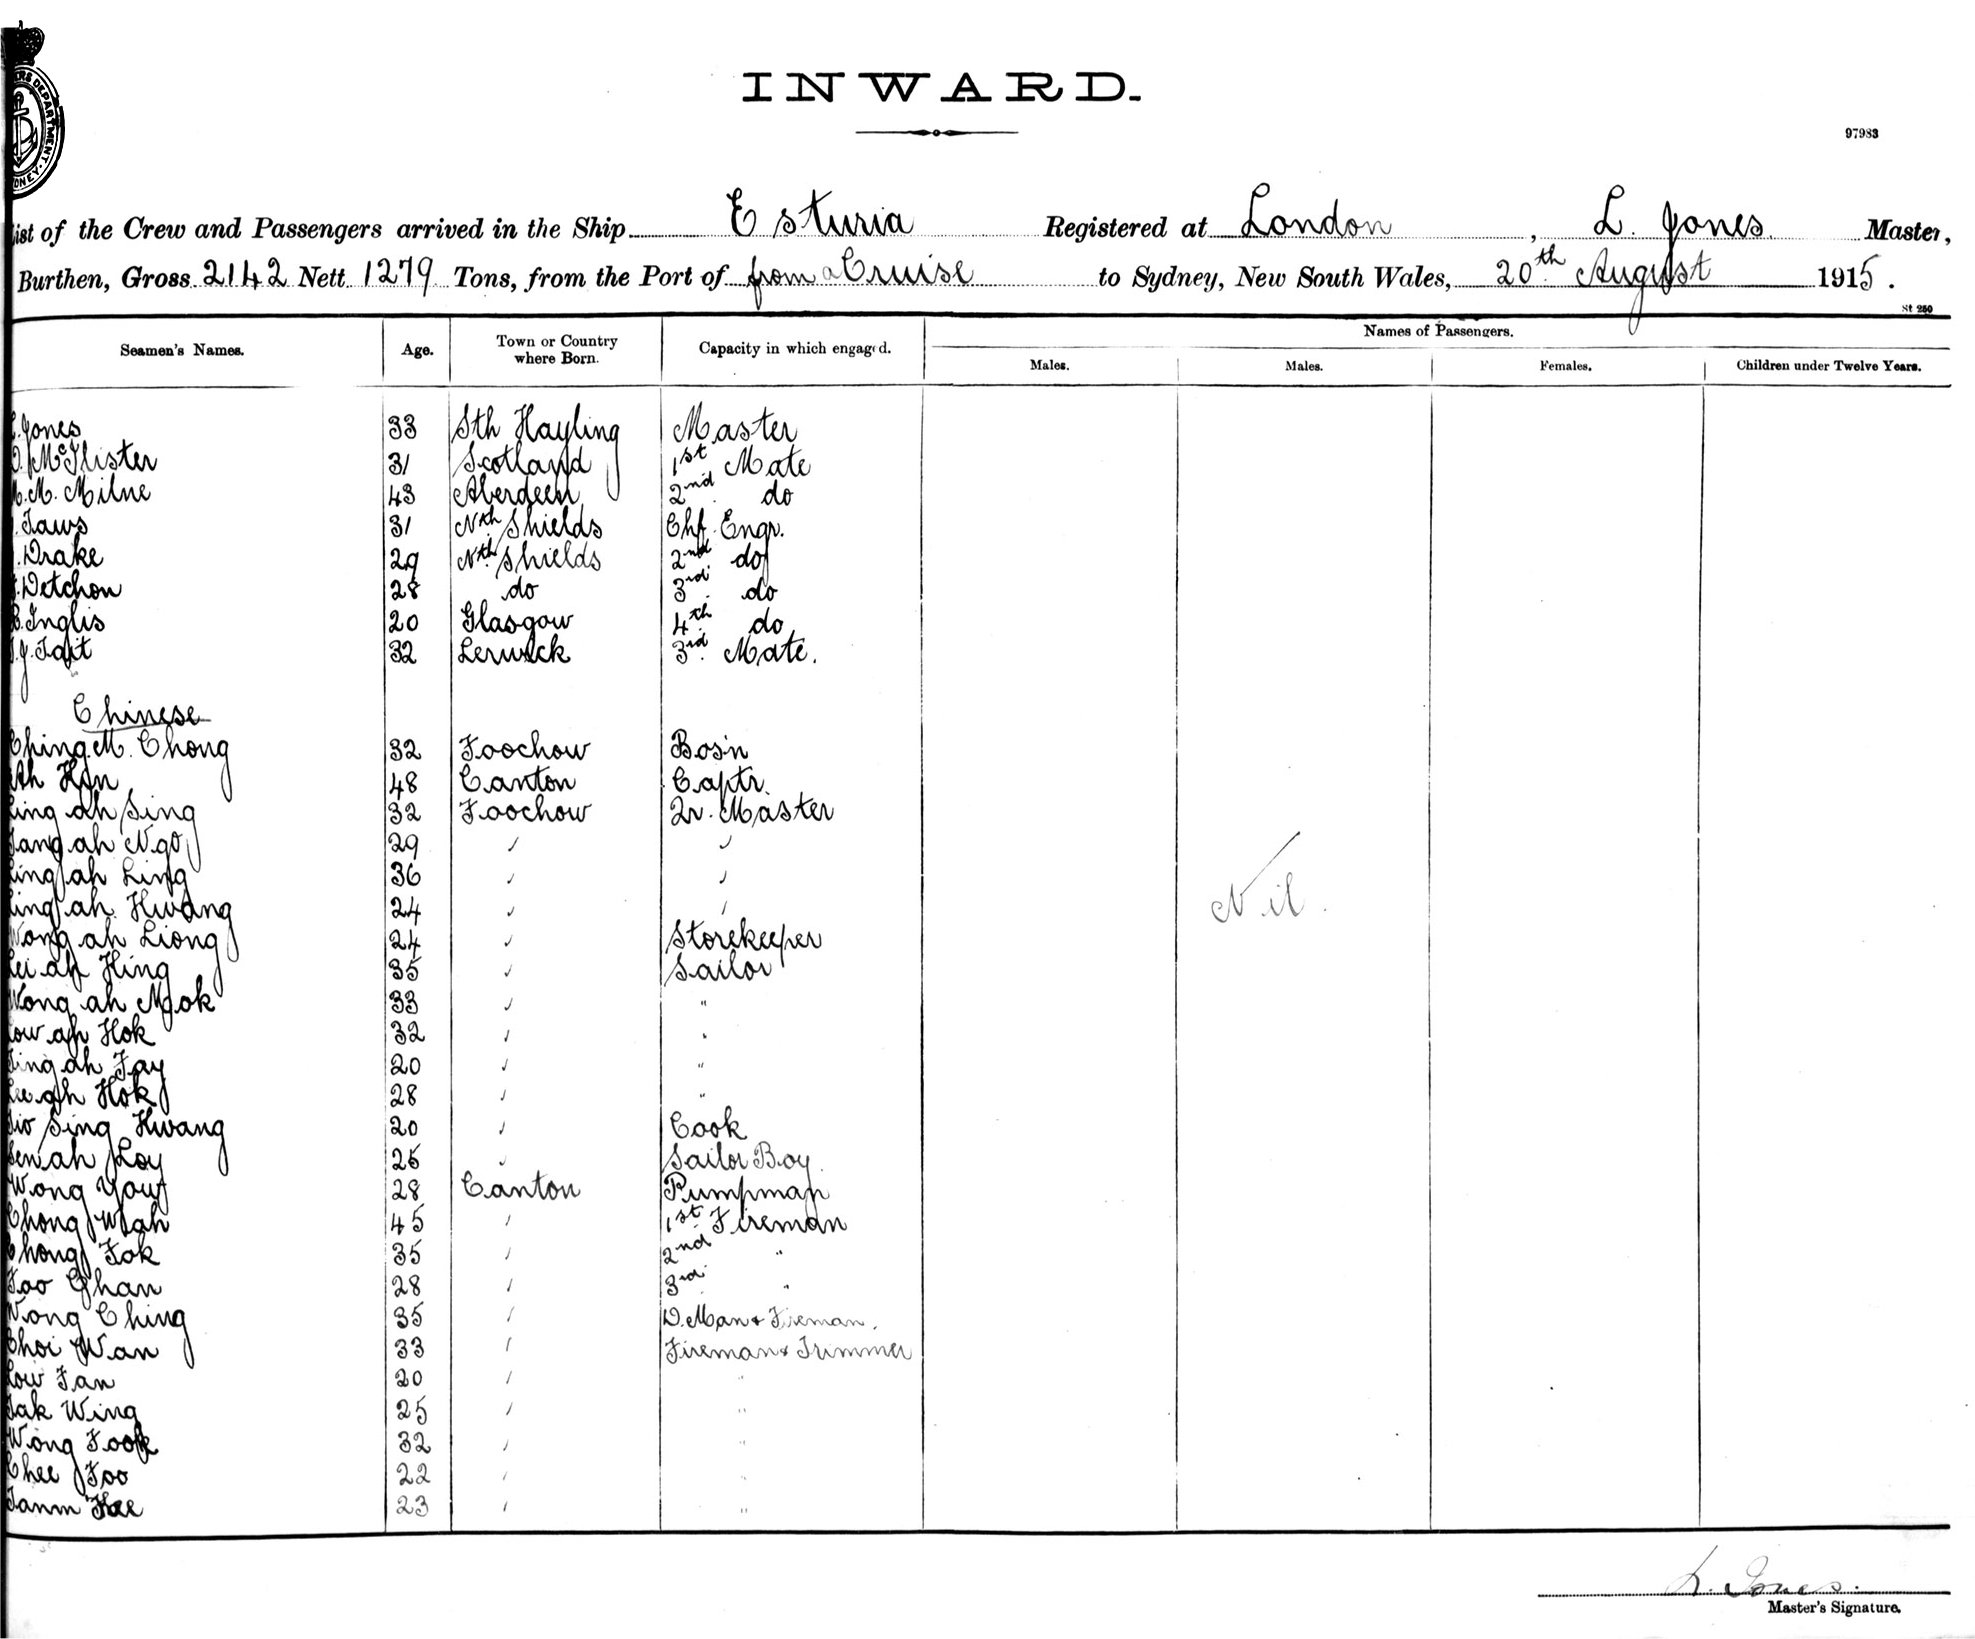 INWARD.
97983
List of the Crew and Passengers arrived in the Ship Esturia Registered at London, L. Jones Master,
Burthen, Gross 2142 Nett 1279 Tons, from the Port of from a Cruise to Sydney, New South Wales, 20th August 1915.
St 250
Seamen's Names. Age. Town or Country where Born. Capacity in which engaged. Names of Passengers.
Males. Males. Females. Children under Twelve Years.
L. Jones 33 Sth Hayling Master
McIlister 31 Scotland 1st Mate
M. Milne 43 Aberdeen 2nd do
Taws 31 Nth Shields Chf. Engr.
Drake 29 Nth Shields 2nd do
Detchon 28 do 3rd do
Inglis 20 Glasgow 4th do
J. Tait 32 Lerwick 3rd Mate.
Chinese
Ching M. Chong 32 Foochow Bos'n
Ah 48 Canton Captr.
Ling ah Sing 32 Foochow Qr. Master
ah Ngo 29 " "
Ling ah Ling 36 " "
Ling ah Hwang 24 " "
Wong ah Liong 24 " Storekeeper
ah Hing 35 " Sailor
Wong ah Mok 33 " "
ah Hok 32 " "
ah Fay 20 " "
Lee ah Hok 28 " "
Sing Hwang 20 " Cook
ah Loy 25 " Sailor Boy
Wong Yow 28 Canton Pumpman
Chong Wah 45 " 1st Fireman
Chong Fok 35 " 2nd "
Foo Chan 28 " 3rd "
Wong Ching 35 " D. Man & Fireman.
Choi Wan 33 " Fireman & Trimmer
Low Fan 20 " "
Tak Wing 25 " "
Wong Fook 32 " "
Chee Foo 22 " "
23 " "
Nil.
L. Jones.
Master's Signature.